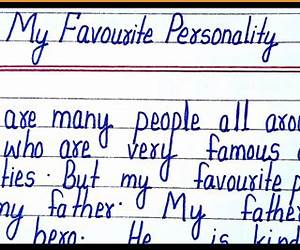 My Favourite Personality
are many people all aro
who are very famous
ties. But my favourite p
my father. My fathe
hero. He is kind